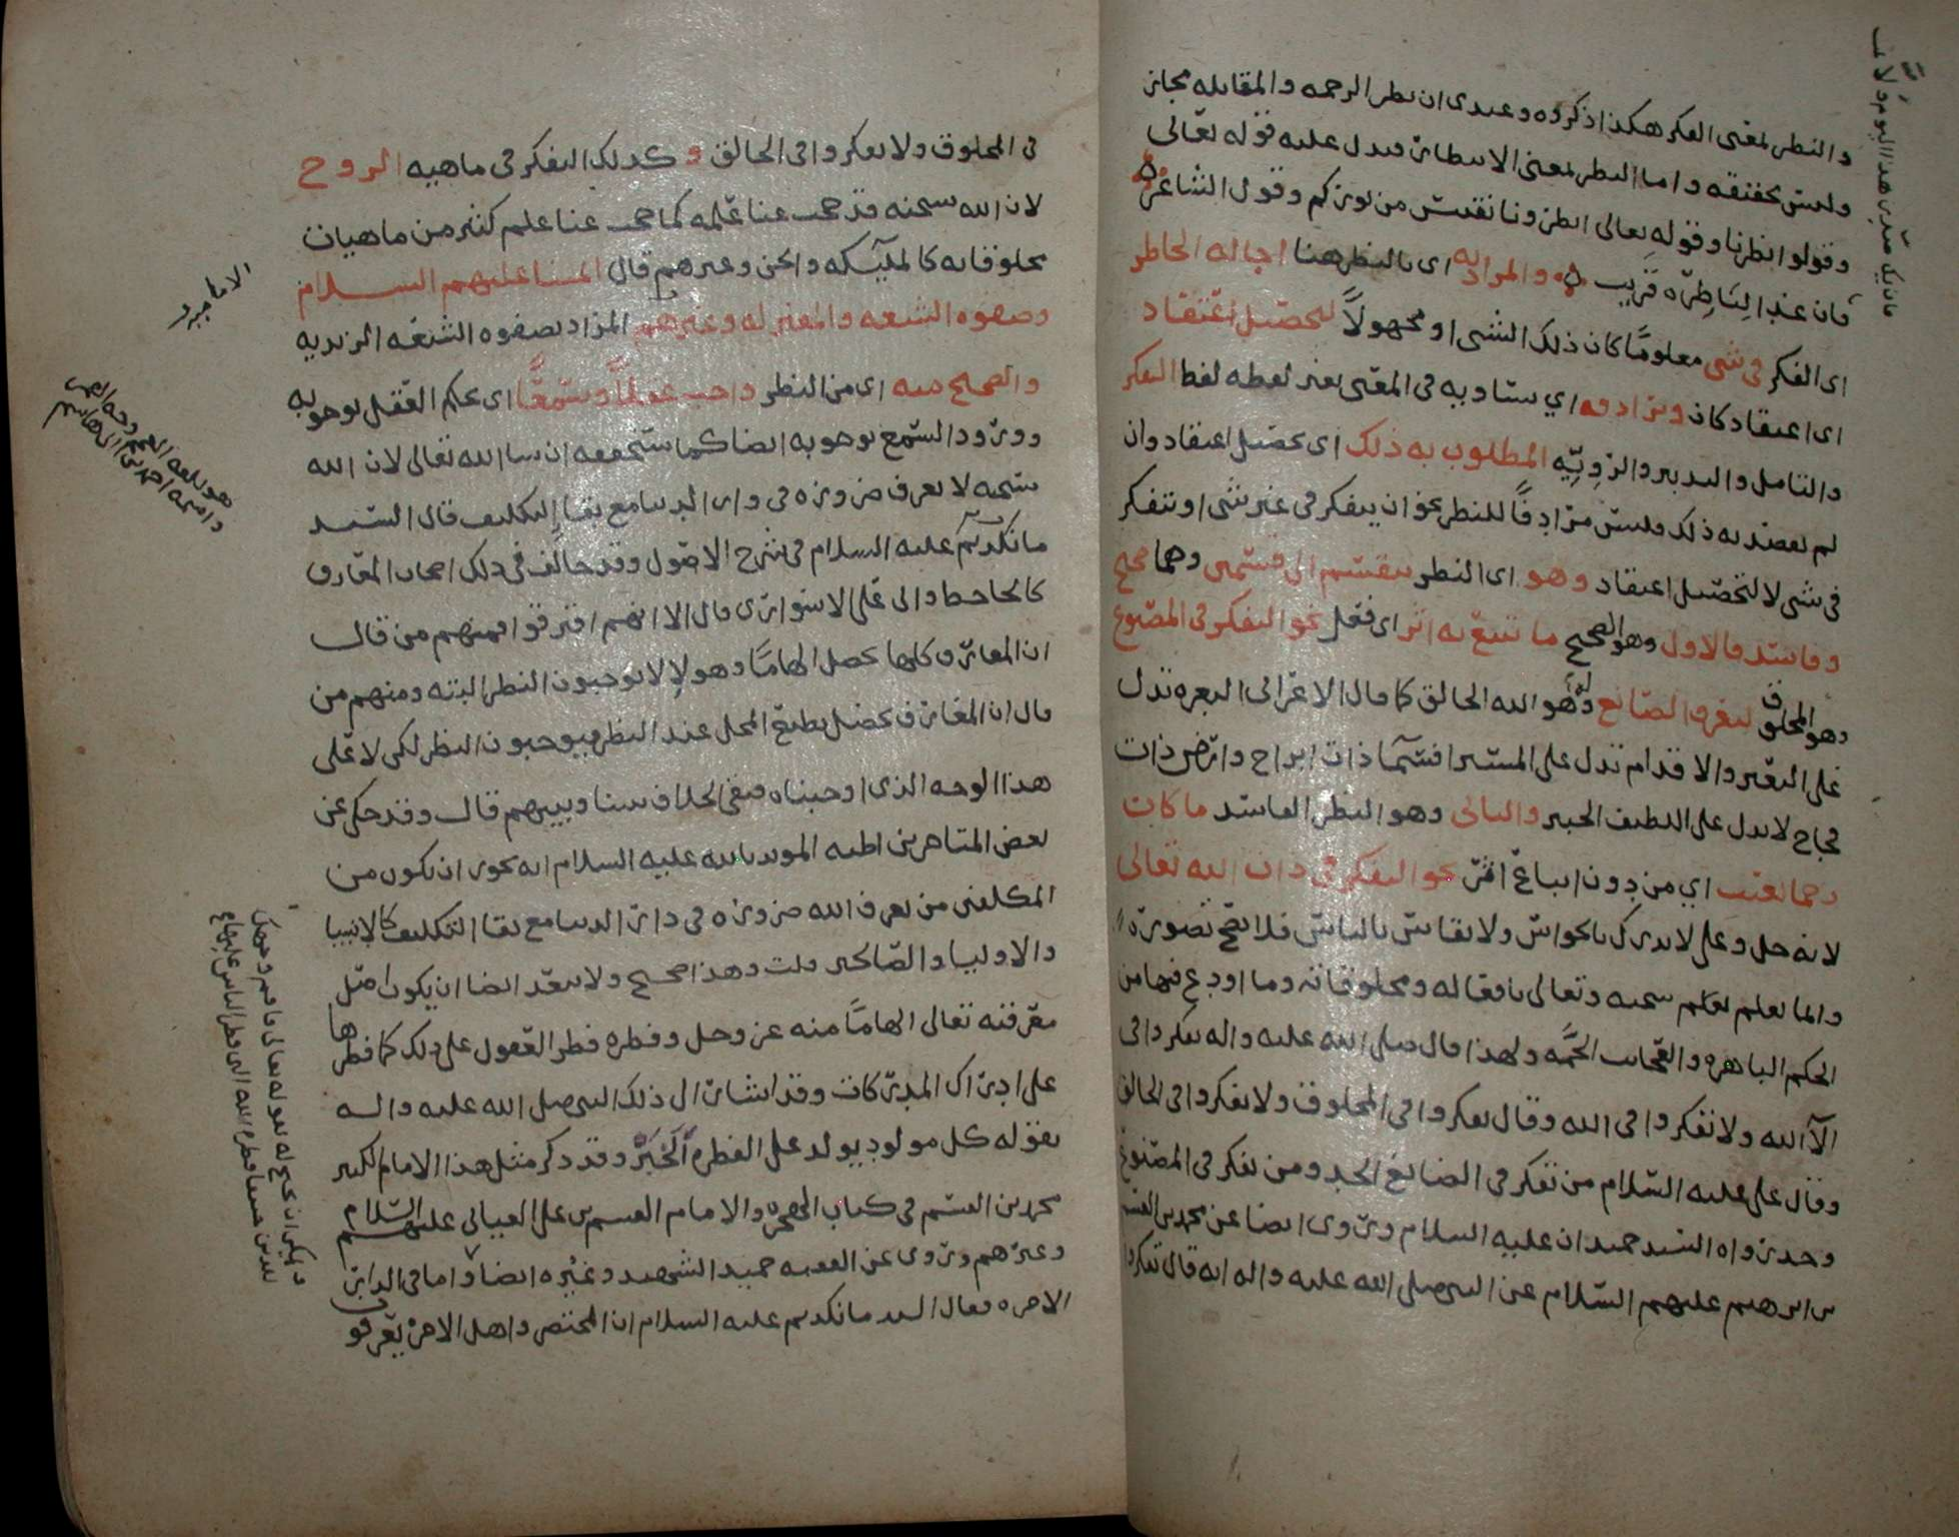 والنظر بمعنى الفكر هكذا ذكروه وعندي ان نظر الرحمه والمقابله مجاز
وليس بحقيقه واما النظر بمعنى الانتظار فيدل عليه قوله تعالى
وقولوا انظرنا وقوله تعالى انظرونا نقتبس من نوركم وقول الشاعر
فان غدا لناظره قريب والمراد به اي بالنظر هنا اجالة الخاطر
اي الفكر في شي معلومًا كان ذلك الشي او مجهولاً لتحصيل اعتقاد
اي اعتقاد كان ويرادفه اي يساويه في المعنى بغير لفظه لفظ التفكر
والتامل والتدبر والرويّه المطلوب به ذلك اي تحصيل اعتقاد وان
لم يقصد به ذلك فليس مرادفًا للنظر نحو ان يتفكر في غير شي او يتفكر
في شي لا لتحصيل اعتقاد وهو اي النظر ينقسم الى قسمين وهما صحيح
وفاسد فالاول وهو الصحيح ما تتبع به اثر اي فعل نحو التفكر في المصنوع
وهو المخلوق ليعرف الصانع له وهو الله الخالق كما قال الاعرابي البعره تدل
على البعير والاقدام تدل على المسير افسمآ ذات ابراج وارض ذات
فجاج لا تدل على اللطيف الخبير والثاني وهو النظر الفاسد ما كان
رجما بغيب اي من دون اتباع اثر نحو التفكر في ذات الله تعالى
لانه جل وعلى لا يدرك بالحواس ولا يقاس بالناس فلا يصح تصوره
وانما يعلم سبحنه وتعالى بافعاله ومخلوقاته وما اودع فيها من
الحكم الباهره والعجائب الجمَّه ولهذا قال صلى الله عليه واله تفكروا في
الآ الله ولا تفكروا في الله وقال تفكروا في المخلوق ولا تفكروا في الخالق
وقال علي عليه السلام من تفكر في الصانع الحد ومن تفكر في المصنوع
وحد رواه السيد حميدان عليه السلام وروى ايضا عن محمد بن القسم
بن ابرهيم عليهم السلام عن النبي صلى الله عليه واله انه قال تفكروا
في المخلوق ولا تفكروا في الخالق وكذلك التفكر في ماهيه الروح
لان الله سبحنه قد حجب عنا علمه كما حجب عنا علم كثير من ماهيات
مخلوقاته كالملآئكه والجن وغيرهم قال ائمتنا عليهم السلام
وصفوه الشيعه والمعتزله وغيرهم المراد بصفوه الشيعه الزيديه
والصحيح منه اي من النظر واجب عقلاً وسمعًا اي يحكم العقل بوجوبه
وورود السمع بوجوبه ايضا كما سنحققه ان شا الله تعالى لان الله
سبحنه لا يعرف ضروره في دار الدنيا مع بقا التكليف قال السيد
مانكديم عليه السلام في شرح الاصول وقد خالف في ذلك اصحاب المعارف
كالجاحظ وابى على الاسوارى قال الا انهم افترقوا فمنهم من قال
ان المعارف كلها تحصل الهامًا وهولا لا يوجبون النظر البته ومنهم من
قال ان المعارف تحصل بطبع المحل عند النظر فيوجبون النظر لكن لا على
هذا الوجه الذي اوجبناه فبقي الخلاف بيننا وبينهم قال وقد حكى عن
بعض المتاخرين اظنه المويد بالله عليه السلام انه يجوز ان يكون من
المكلفين من يعرف الله ضروره في دار الدنيا مع بقا التكليف كالانبيا
والاوليا والصالحين قلت وهذا صحيح ولا يبعد ايضا ان يكون اصل
معرفته تعالى الهامًا منه عز وجل وفطره فطر العقول على ذلك كما فطرها
على ادراك المدركات وقد اشار الى ذلك النبي صلى الله عليه واله
بقوله كل مولود يولد على الفطره الخبر وقد ذكر مثل هذا الامام الكبير
محمد بن القسم في كتاب الهجره والامام القسم بن علي العياني عليهم السلام
وغيرهم وروى عن الفقيه حميد الشهيد وغيره ايضا واما في الدار
الاخره فقال السيد مانكديم عليه السلام ان المحتضر واهل الاخره يعرفون